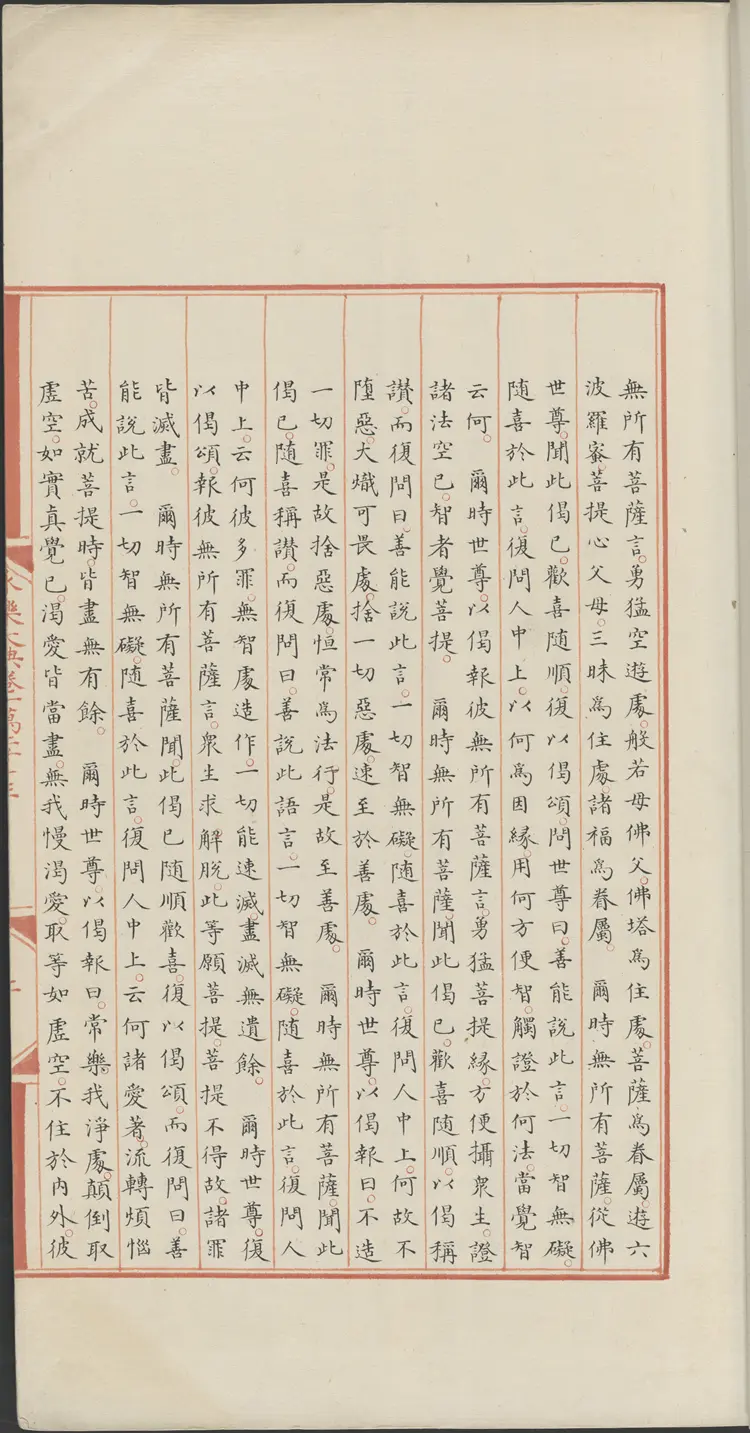 無所有菩薩言。勇猛空遊處。般若母佛父。佛塔為住處。菩薩為眷屬。遊六
波羅蜜。菩提心父母。三昧為住處。諸福為眷屬。　爾時無所有菩薩。從佛
世尊。聞此偈已。歡喜隨順。復以偈頌。問世尊曰。善能說此言。一切智無礙。
随喜於此言。復問人中上。以何為因緣。用何方便智。觸證於何法。當覺智
云何。　爾時世尊。以偈報彼無所有菩薩言。勇猛菩提緣。方便攝衆生。證
諸法空已。智者覺菩提。　爾時無所有菩薩。聞此偈已。歡喜随順。以偈稱
讃。而復問曰。善能說此言。一切智無礙。随喜於此言。復問人中上。何故不
墮惡。大熾可畏處。捨一切惡處。速至於善處。　爾時世尊。以偈報曰。不造
一切罪。是故捨惡處。恒常為法行。是故至善處。　爾時無所有菩薩。聞此
偈已。随喜稱讃。而復問曰。善說此語言。一切智無礙。随喜於此言。復問人
中上。云何彼多罪。無智處造作。一切能速滅。盡滅無遺餘。　爾時世尊。復
以偈頌。報彼無所有菩薩言。衆生求解脫。此等願菩提。菩提不得故。諸罪
皆滅盡。　爾時無所有菩薩聞。此偈已随順歡喜。復以偈頌。而復問曰。善
能說此言。一切智無礙。随喜於此言。復問人中上。云何諸愛著。流轉煩惱
苦。成就菩提時。皆盡無有餘。　爾時世尊。以偈報曰。常樂我淨處。顛倒取
虛空。如實真覺已。渴愛皆當盡。無我慢渴愛。取等如虛空。不住於內外。彼